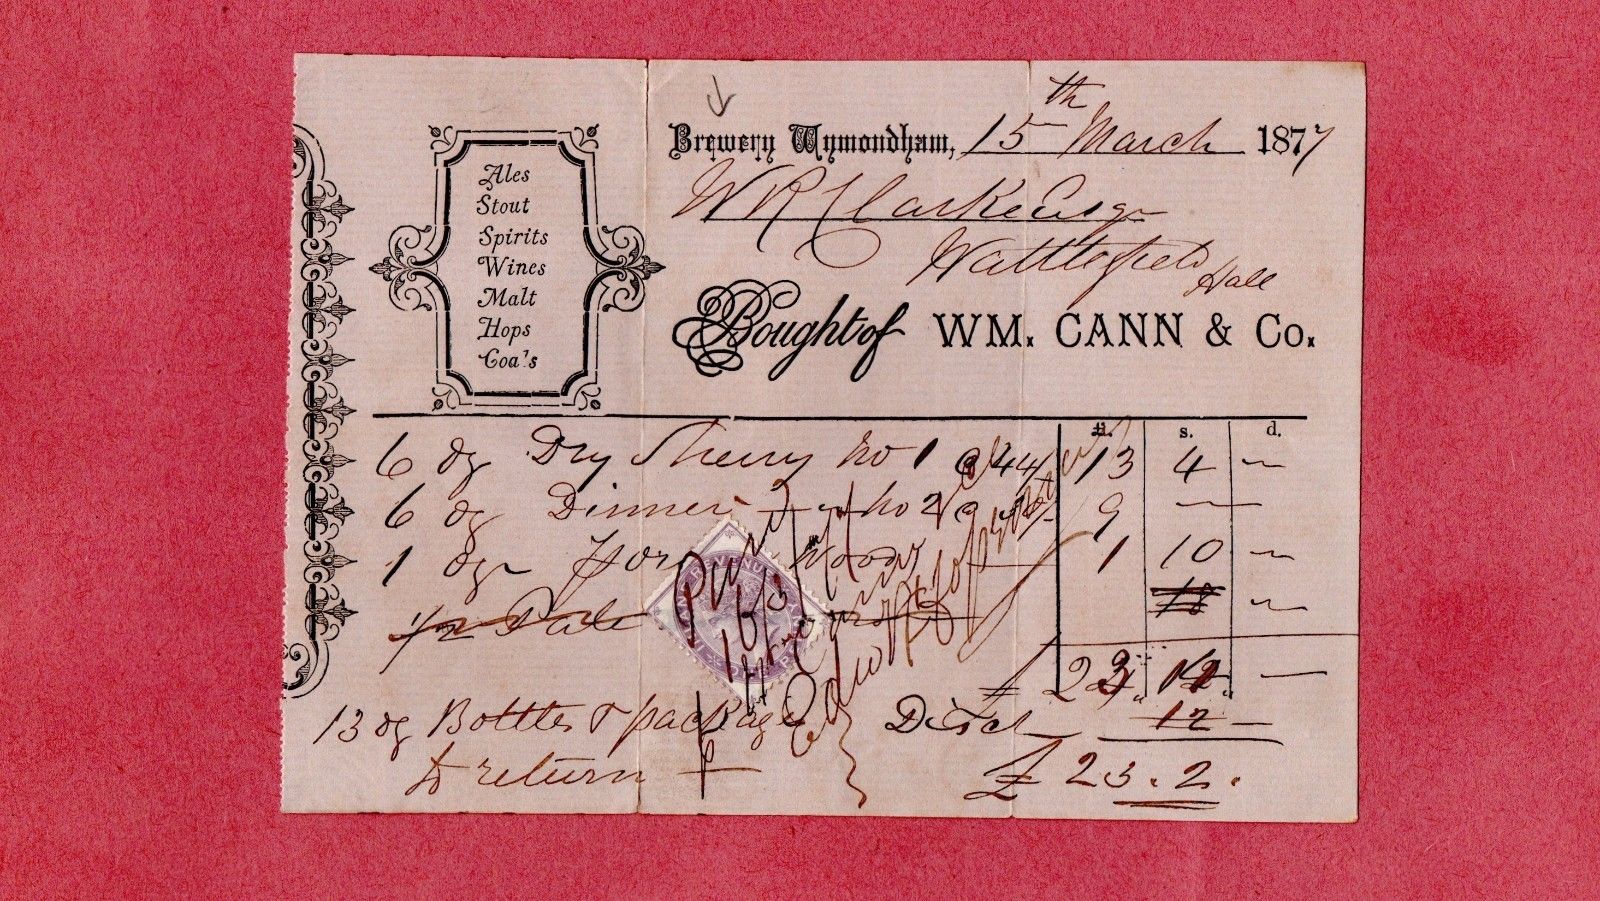 Ales
Stout
Spirits
Wines
Malt
Hops
Coa's
Brewery Wymondham, 15th March 1877
W R Clarke Esqr
Wattlefield Hall
Bought of WM. CANN & Co.
£. s. d.
6 dz Dry Sherry No 1 @ 44/ 13 4 —
6 dz Dinner No 2 @ 9 — —
1 dz 1 10 —
1/2 Pale 18 —
£ 23 14 —
13 dz Bottles & packages Disct 12 —
to return £ 23. 2.
INLAND REVENUE
Paid
16/3/77